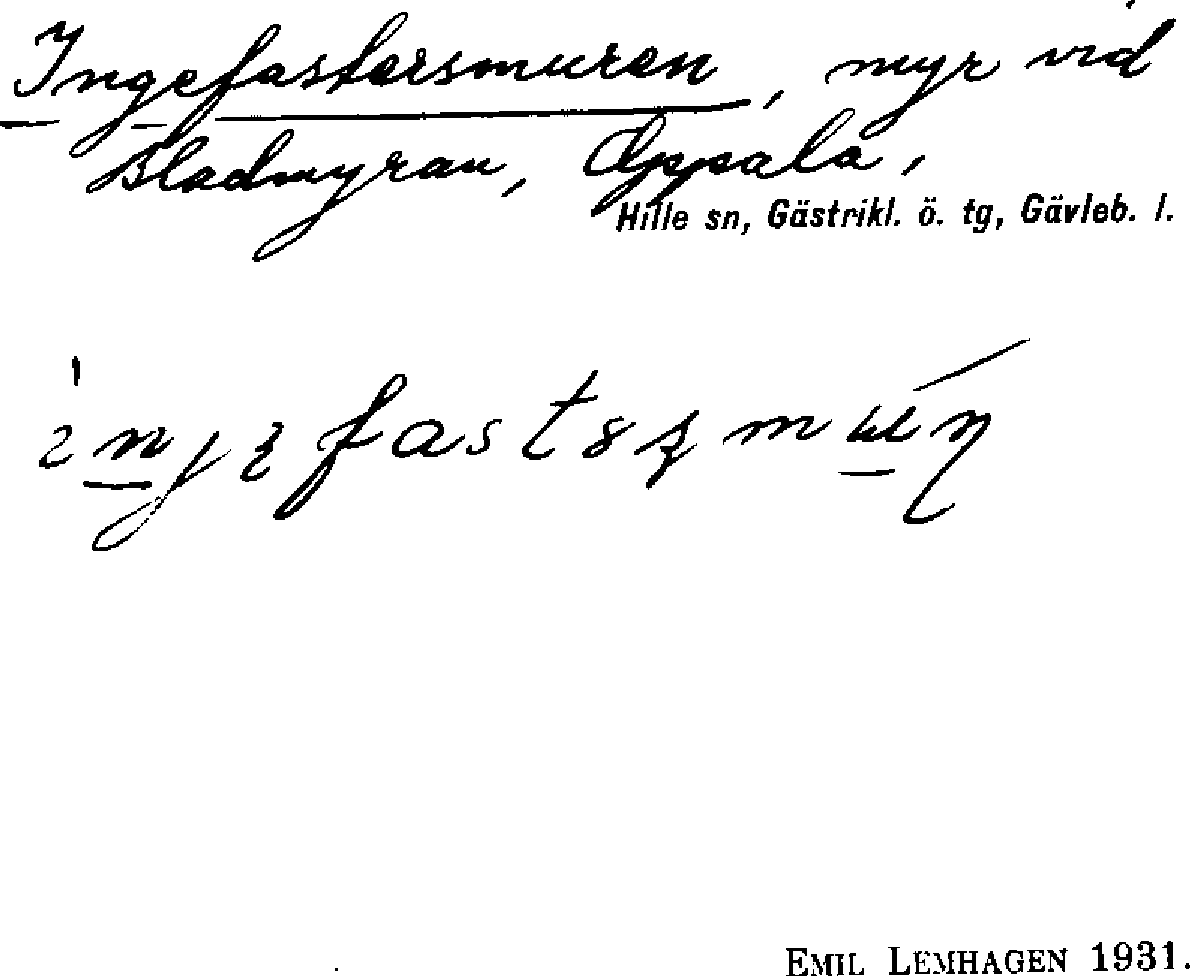 Ingefastersmuren, myr vid
Bladmyran, Oppala,
Hille sn, Gästrikl. ö. tg, Gävleb. l.
EMIL LEMHAGEN 1931.